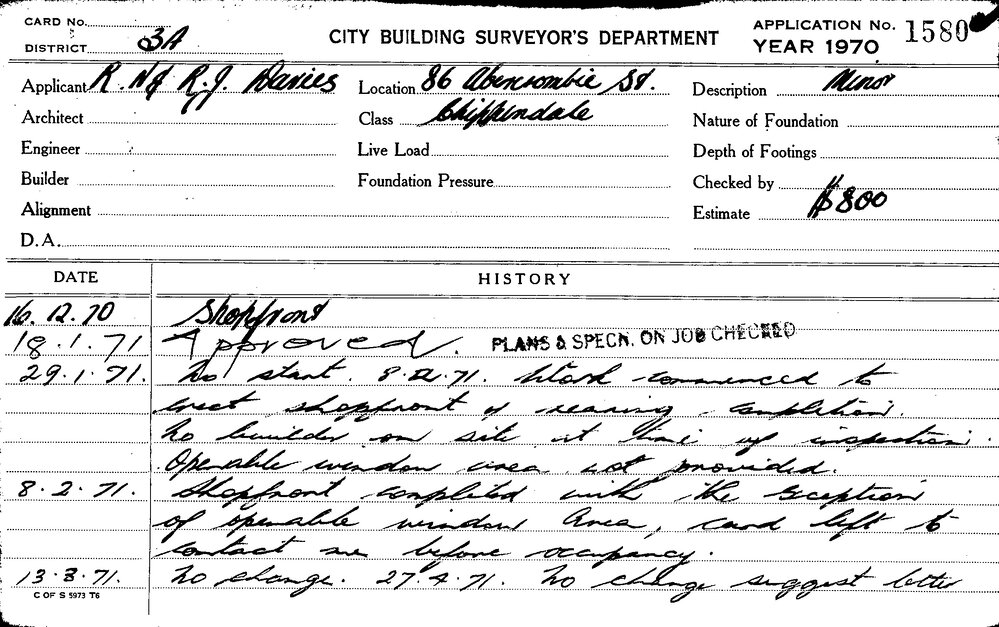 CARD No.
DISTRICT 3A
CITY BUILDING SURVEYOR'S DEPARTMENT
APPLICATION No. 1580
YEAR 1970
Applicant R. N & R. J. Davies
Location 86 Abercrombie St.
Description Minor
Architect
Class Chippendale
Nature of Foundation
Engineer
Live Load
Depth of Footings
Builder
Foundation Pressure
Checked by
Alignment
Estimate $800
D.A.
DATE HISTORY
16.12.70 Shopfront
18.1.71 Approved. PLANS & SPECN. ON JOB CHECKED
29.1.71. No start. 8.2.71. Work commenced to
erect shopfront & nearing completion.
No builder on site at time of inspection.
Openable window area not provided.
8.2.71. Shopfront completed with the exception
of openable window area, card left to
contact me before occupancy.
13.3.71. No change. 27.4.71. No change suggest letter
C OF S 5973 T6